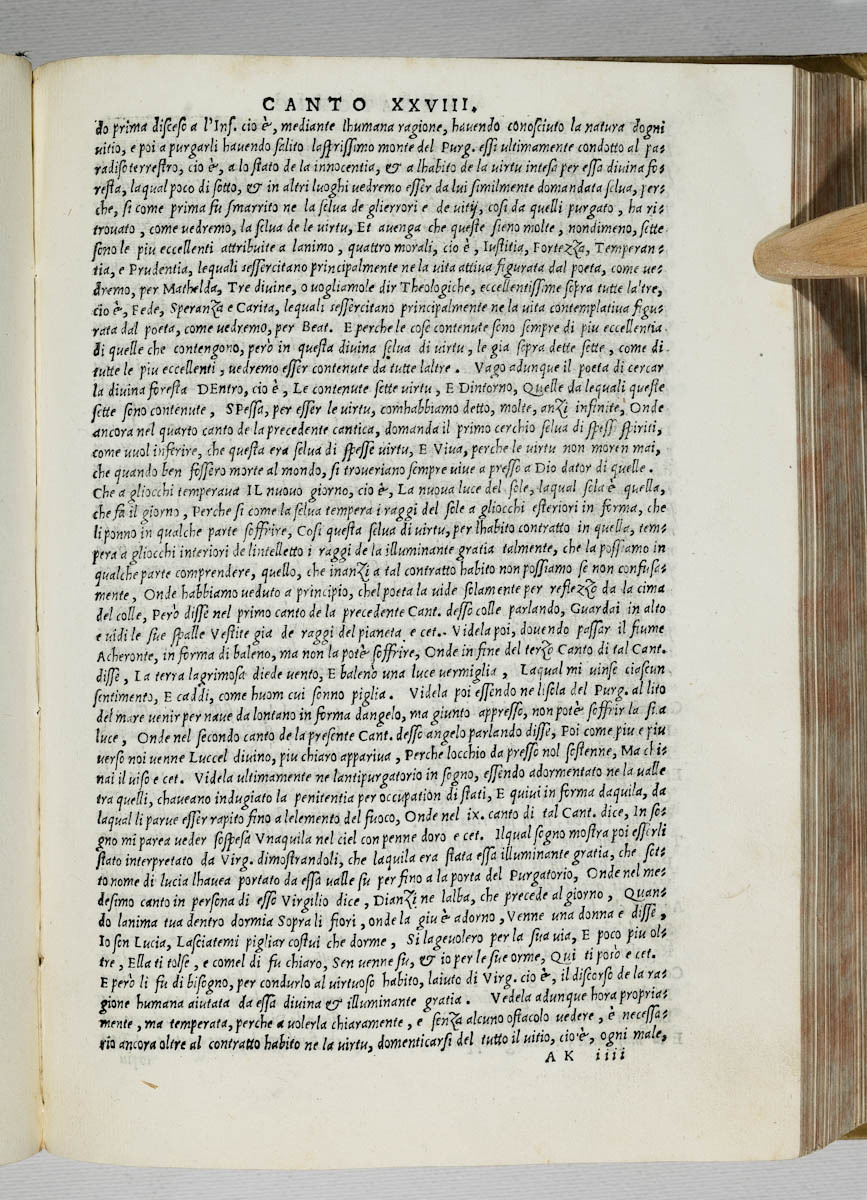 CANTO XXVIII.
do prima disceso a l'Inf. cio è, mediante lhumana ragione, havendo conosciuto la natura dogni
vitio, e poi a purgarli havendo salito lasprissimo monte del Purg. essi ultimamente condotto al pa-
radiso terrestro, cio è, a lo stato de la innocentia, & a lhabito de la virtu intesa per essa divina fo-
resta, laqual poco di sotto, & in altri luoghi vedremo esser da lui similmente domandata selua, per-
che, si come prima fu smarrito ne la selua de glierrori e de vitij, cosi da quelli purgato, ha ri-
trovato, come vedremo, la selua de le virtu, Et avenga che queste sieno molte, nondimeno, sette
sono le piu eccellenti attribuite a lanimo, quattro morali, cio è, Iustitia, Fortezza, Temperan-
tia, e Prudentia, lequali sessercitano principalmente ne la vita attiva figurata dal poeta, come ve-
dremo, per Mathelda, Tre divine, o vogliamole dir Theologiche, eccellentissime sopra tutte la'tre,
cio è, Fede, Speranza e Carita, lequali sessercitano principalmente ne la vita contemplativa figu-
rata dal poeta, come vedremo, per Beat. E perche le cose contenute sono sempre di piu eccellentia
di quelle che contengono, però in questa divina selua di virtu, le gia sopra dette sette, come di
tutte le piu eccellenti, vedremo esser contenute da tutte laltre. Vago adunque il poeta di cercar
la divina foresta DEntro, cio è, Le contenute sette virtu, E Dintorno, Quelle da lequali queste
sette sono contenute, SPessa, per esser le virtu, comhabbiamo detto, molte, anzi infinite, Onde
ancora nel quarto canto de la precedente cantica, domanda il primo cerchio selua di spessi spiriti,
come vuol inferire, che questa era selua di spesse virtu, E Viva, perche le virtu non moren mai,
che quando ben fossero morte al mondo, si troveriano sempre vive a presso a Dio dator di quelle.
Che a gliocchi temperava IL nuovo giorno, cio è, La nuova luce del sole, laqual sola è quella,
che fa il giorno, Perche si come la selua tempera i raggi del sole a gliocchi esteriori in forma, che
li ponno in qualche parte soffrire, Cosi questa selua di virtu, per lhabito contratto in quella, tem-
pera a gliocchi interiori de lintelletto i raggi de la illuminante gratia talmente, che la possiamo in
qualche parte comprendere, quello, che inanzi a tal contratto habito non possiamo se non confusa-
mente, Onde habbiamo veduto a principio, chel poeta la vide solamente per reflezzo da la cima
del colle, Però disse nel primo canto de la precedente Cant. desso colle parlando, Guardai in alto
e vidi le sue spalle Vestite gia de raggi del pianeta e cet. Videla poi, dovendo passar il fiume
Acheronte, in forma di baleno, ma non la potè soffrire, Onde in fine del terzo Canto di tal Cant.
disse, La terra lagrimosa diede vento, E balenò una luce vermiglia, Laqual mi vinse ciascun
sentimento, E caddi, come huom cui sonno piglia. Videla poi essendo ne lisola del Purg. al lito
del mare venir per nave da lontano in forma dangelo, ma giunto appresso, non potè soffrir la sua
luce, Onde nel secondo canto de la presente Cant. desso angelo parlando disse, Poi come piu e piu
verso noi venne Luccel divino, piu chiaro appariva, Perche locchio da presso nol sostenne, Ma chi-
nai il viso e cet. Videla ultimamente ne lantipurgatorio in sogno, essendo adormentato ne la valle
tra quelli, chaveano indugiato la penitentia per occupation di stati, E quivi in forma daquila, da
laqual li parve esser rapito fino a lelemento del fuoco, Onde nel ix. canto di tal Cant. dice, In so-
gno mi parea veder sospesa Vnaquila nel ciel con penne doro e cet. Ilqual sogno mostra poi esserli
stato interpretato da Virg. dimostrandoli, che laquila era stata essa illuminante gratia, che sot-
to nome di lucia lhavea portato da essa valle su per fino a la porta del Purgatorio, Onde nel me-
desimo canto in persona di esso Virgilio dice, Dianzi ne lalba, che precede al giorno, Quan-
do lanima tua dentro dormia Sopra li fiori, onde la giu è adorno, Venne una donna e disse,
Io son Lucia, Lasciatemi pigliar costui che dorme, Si lagevolero per la sua via, E poco piu ol-
tre, Ella ti tolse, e comel di fu chiaro, Sen venne su, & io per le sue orme, Qui ti posò e cet.
E però li fu di bisogno, per condurlo al virtuoso habito, laiuto di Virg. cio è, il discorso de la ra-
gione humana aiutata da essa divina & illuminante gratia. Vedela adunque hora propria-
mente, ma temperata, perche a volerla chiaramente, e senza alcuno ostacolo vedere, è necessa-
rio ancora oltre al contratto habito ne la virtu, domenticarsi del tutto il vitio, cio è, ogni male,
AK iiii